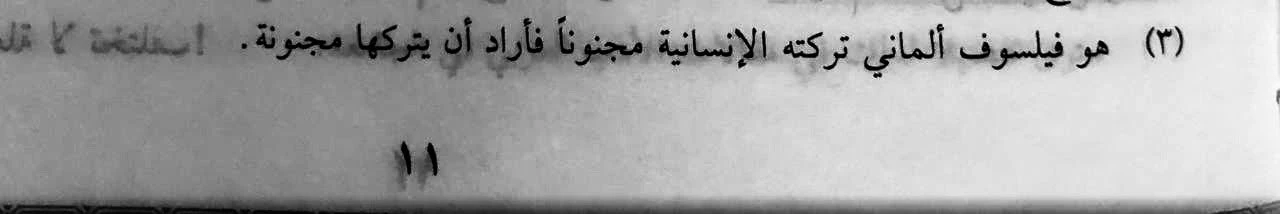 (٣) هو فيلسوف ألماني تركته الإنسانية مجنوناً فأراد أن يتركها مجنونة.
١١